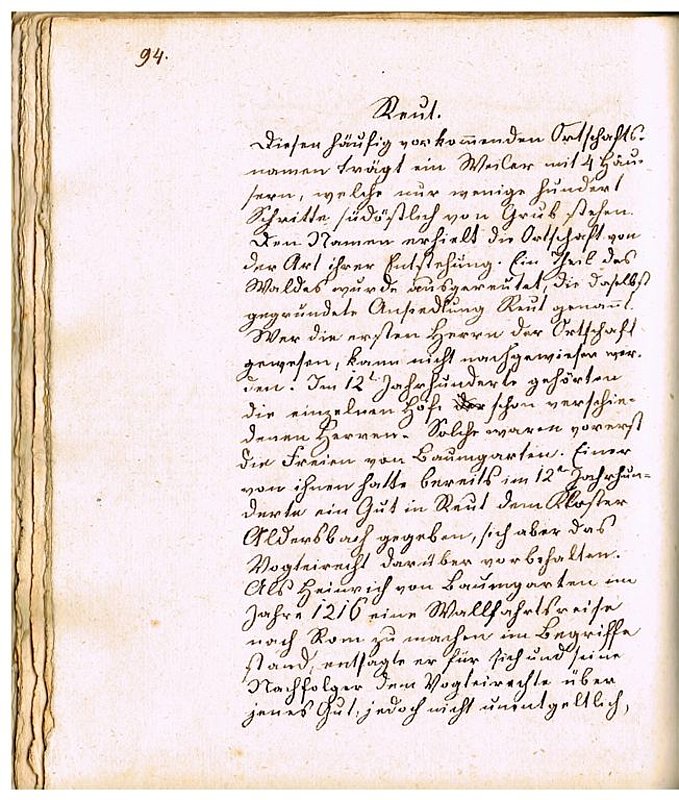 94.
Reut.
Diesen häufig vorkom̅enden Ortschafts-
namen trägt ein Weiler mit 4 Häu-
sern, welche nur wenige hundert
Schritte südöstlich von Grub stehen.
Den Namen erhielt die Ortschaft von
der Art ihrer Entstehung. Ein Theil des
Waldes wurde ausgereutet, die daselbst
gegründete Ansiedlung Reut genan̅t.
Wer die ersten Herrn der Ortschaft
gewesen, kann nicht nachgewiesen wer-
den. Im 12t Jahrhunderte gehörten
die einzelnen Höfe der schon verschie-
denen Herren. Solche waren vorerst
die Freien von Baumgarten. Einer
von ihnen hatte bereits im 12t Jahrhun-
derte ein Gut in Reut dem Kloster
Aldersbach gegeben, sich aber das
Vogteirecht darüber vorbehalten.
Als Heinrich von Baumgarten im
Jahre 1216 eine Wallfahrtsreise
nach Rom zu machen im Begriffe
stand, entsagte er für sich und seine
Nachfolger dem Vogteirechte über
jenes Gut, jedoch nicht unentgeltlich,